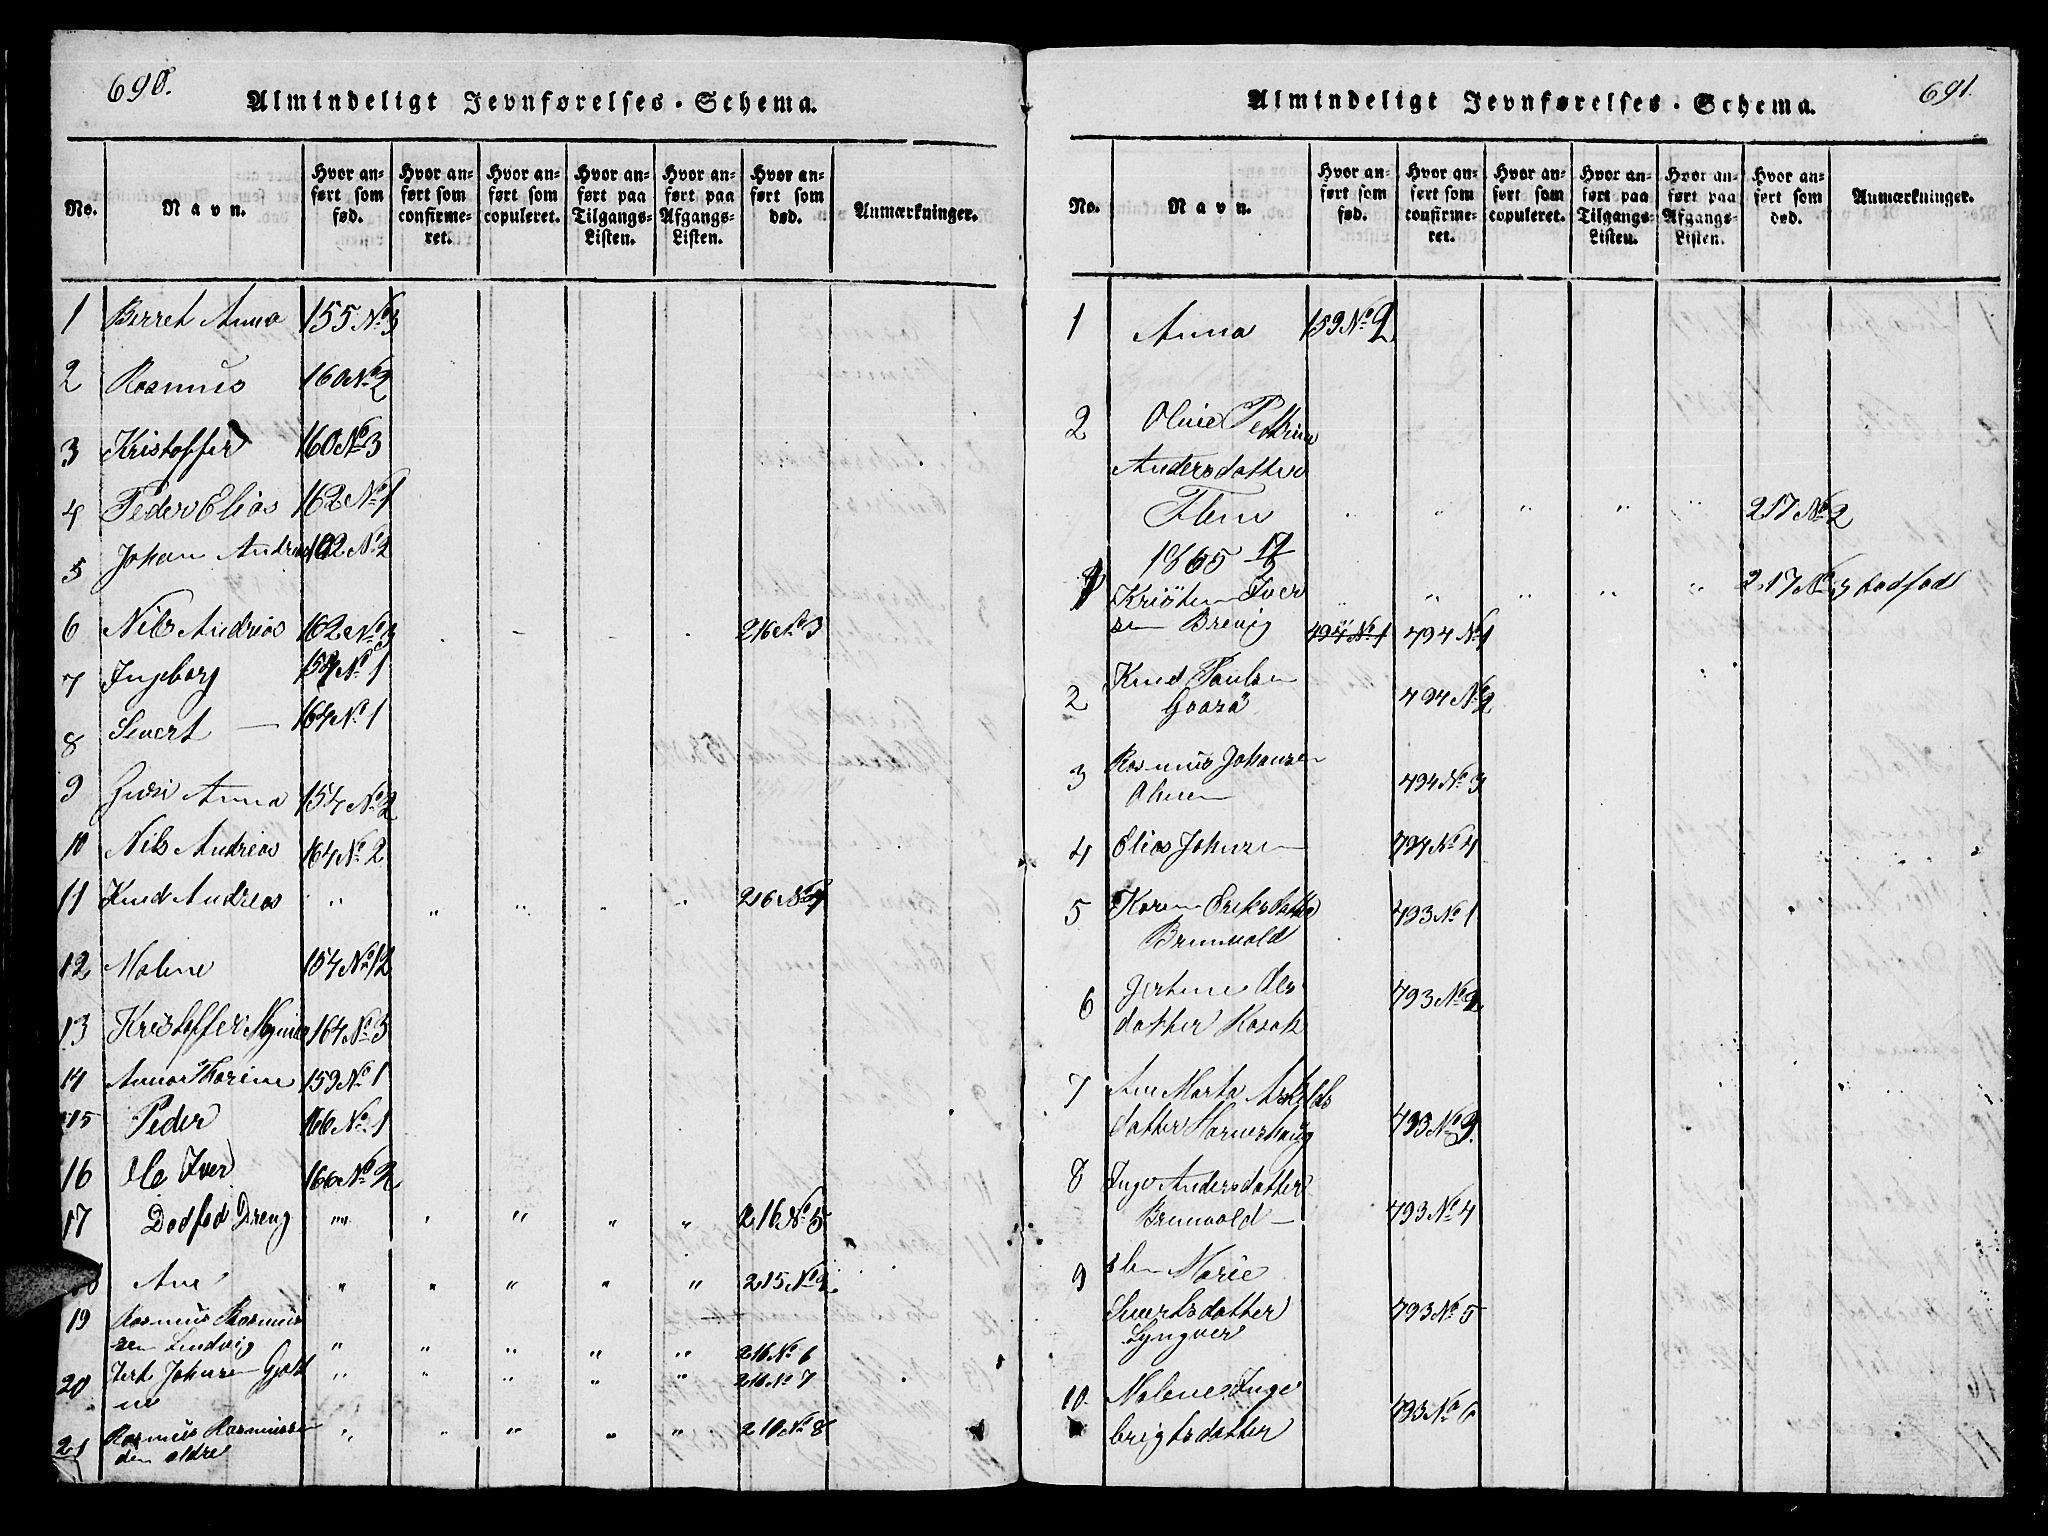 690.
Almindeligt Jevnførelses-Schema.
No.
Navn.
Hvor anført som fød.
Hvor anført som confirmeret.
Hvor anført som copuleret.
Hvor anført paa Tilgangs-Listen.
Hvor anført paa Afgangs-Listen.
Hvor anført som død.
Anmærkninger.
1 Berret Anna 155 No 3
2 Rasmus 160 No 2
3 Kristoffer 160 No 3
4 Peder Elias 162 No 1
5 Johan Andreas 162 No 2
6 Nils Andreas 162 No 3 216 No 3
7 Ingeborg 154 No 1
8 Sivert — 164 No 1
9 Guri Anna 154 No 2
10 Nils Andreas 164 No 2
11 Knud Andreas " " " " " 216 No 4
12 Malene 154 No 12
13 Kristoffer Magnus 164 No 3
14 Anna Karine 159 No 1
15 Peder 166 No 1
16 Ole Iver 166 No 2
17 Dødfød Dreng " " " " " 216 No 5
Ane " " " " " 215 No 2
19 Rasmus Rasmus
sen Lindvig " " " " " 216 No 6
20 Johnsen " " " " " 216 No 7
ne
21 Rasmus Rasmussen " " " " " 216 No 8
den ældre
691.
Almindeligt Jevnførelses-Schema.
No.
Navn.
Hvor anført som fød.
Hvor anført som confirmeret.
Hvor anført som copuleret.
Hvor anført paa Tilgangs-Listen.
Hvor anført paa Afgangs-Listen.
Hvor anført som død.
Anmærkninger.
1 Anna 159 No 2
2 Oline Petrine
Andersdatter
Flem " " " " " 217 No 2
1865 17/
" " " " " 217 No 3 dødfødt
1 Kristen Iver
sen Brevig 494 No 1 494 No 1
2 Knud Paulsen
494 No 2
3 Rasmus Johansen
494 No 3
4 Elias Johnsen 494 No 4
5 Karen Eriksdatter 493 No 1
Brunvold
6 Jertine Ols
datter 493 No 2
7 Ane Marta
datter 493 No 3
8 Inger Andersdatter
Brunvold — 493 No 4
9 Marie
Sivertsdatter 493 No 5
Lyngver
10 Malene Inge
brigtsdatter 493 No 6